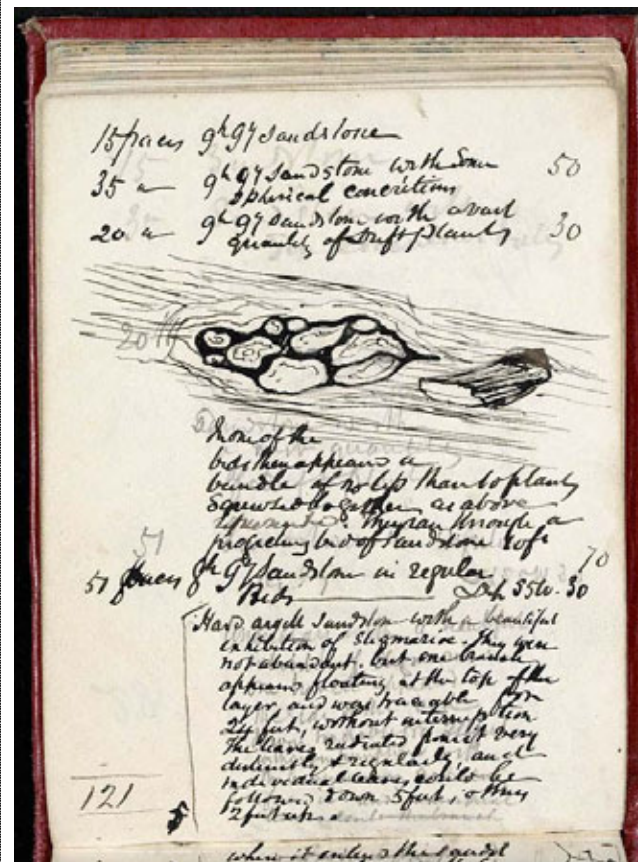 15 paces gh gy sandstone
35 " gh gy sandstone with some 50
spherical concretions
20 " gh gy sandstone with a vast 30
quantity of drift plants
20 ft
In one of the
beds then appears a
bundle of no less than 10 plants
screwed together as above
They ran through a
projecting bed of sandstone 10 ft
51
51 paces gh gy sandstone in regular 70
Beds Dip S 50 W. 30
Hard argill sandstone with a beautiful
exhibition of Stigmariae. They were
not abundant, but one branch
appears floating at the top of the
layer, and were traceable for
24 feet, without interruption
The leaves radiated from it very
distinctly & regularly, and
individual leaves could be
followed down 5 feet, others
2 feet up.
121
5
where it enters the